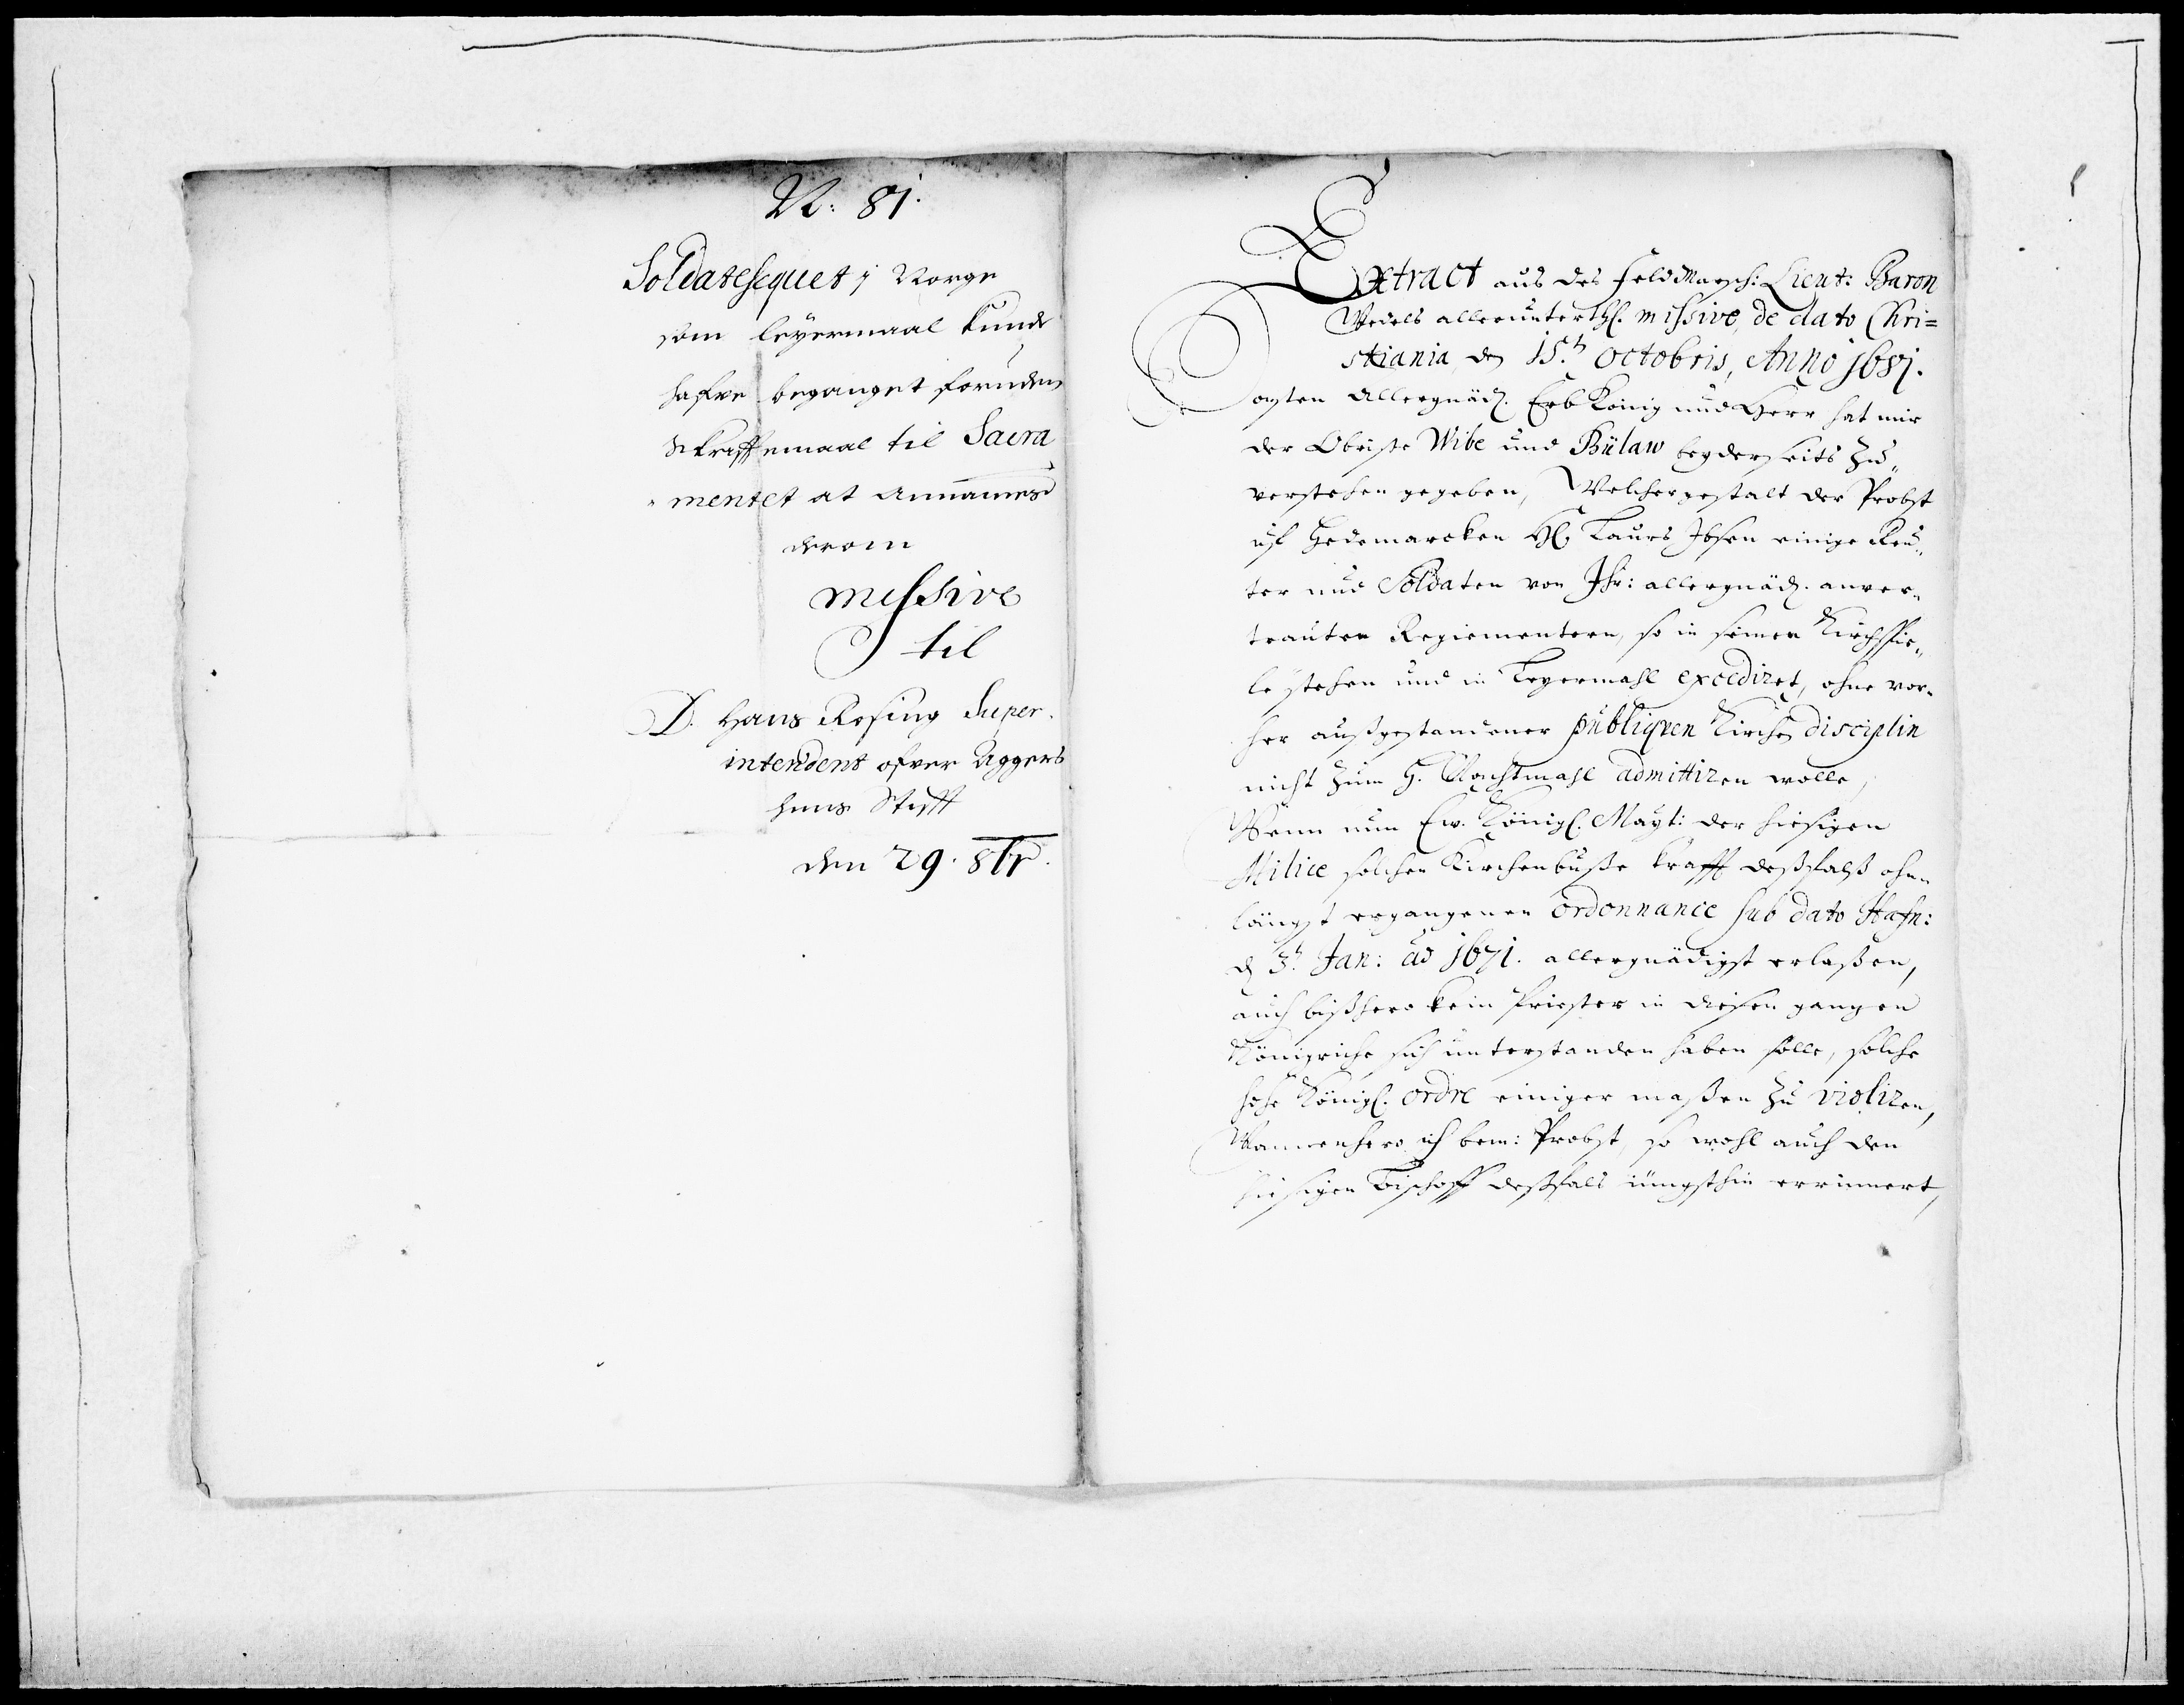 N: 81.
Soldatesquet i Norge
som leyermaal kunde
hafve beganget foruden
Skrifftemaal til Sacra
mentet at annammes
derom
Missive
til
D. Hans Rosing Super
intendent ofver Agger
huus Stifft
den 29. 8br.
Extract aus des FeldMarsch: Lieut: Baron
Wedels allerunterthl. missive, de dato Chri=
stiania, den 15.t Octobris, Anno 1681.
Allergnäd. ErbKönig und Herr hat mir
der Obriste Wibe und Bülaw beyderseits zu„
verstehen gegeben, Welchergestalt der Probst
uf Hedemarcken H. Laurs Ibsen einige Reu„
ter und Soldaten von Ihr: allergnäd. anver„
trauten Regimentern, so in seinen Kirchspie„
le stehen und in Leyermahl excediret, ohne vor„
her außgestandener publiquen Kirchen disciplin
nicht zum H. Nachtmahl admittiren wolle,
Wenn nun Ew. Königl. Mayt: der hiesigen
Milice solchen Kirchenbuße krafft deßfalß ohn„
längst ergangenen ordonnance sub dato Hafn:
d 3.t Jan: ao 1671. allergnädigst erlaßen,
auch bißhero kein Priester in diesen gantzen
Königreiche sich unterstanden haben solle, solche
hohe Königl. ordre einiger maßen zu violiren,
Wannenhero ich bem: Probst, so wohl auch den
hiesigen Bischoff deßfals jüngsthin errinnert,